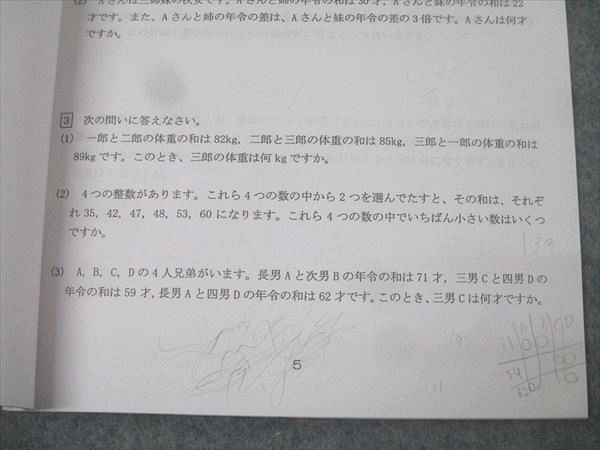 (2) Aさんは三姉妹の次女です。Aさんと姉の年令の和は30才，Aさんと妹の年令の和は22
才です。また，Aさんと姉の年令の差は，Aさんと妹の年令の差の3倍です。Aさんは何才
ですか。
3 次の問いに答えなさい。
(1) 一郎と二郎の体重の和は82kg，二郎と三郎の体重の和は85kg，三郎と一郎の体重の和は
89kgです。このとき，三郎の体重は何kgですか。
(2) 4つの整数があります。これら4つの数の中から2つを選んでたすと，その和は，それぞ
れ35，42，47，48，53，60になります。これら4つの数の中でいちばん小さい数はいくつ
ですか。
133
(3) A，B，C，Dの4人兄弟がいます。長男Aと次男Bの年令の和は71才，三男Cと四男Dの
年令の和は59才，長男Aと四男Dの年令の和は62才です。このとき，三男Cは何才ですか。
5